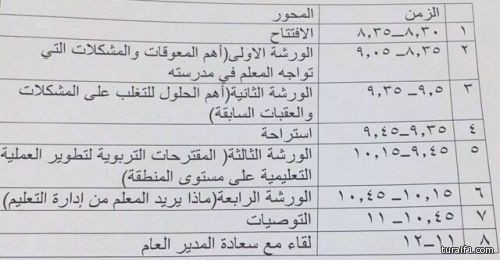 الزمن المحور
١ ٨,٣٠ــ٨,٣٥ الافتتاح
٢ ٨,٣٥ــ٩,٠٥ الورشة الاولى(أهم المعوقات والمشكلات التي
تواجه المعلم في مدرسته
٣ ٩,٥ــ٩,٣٥ الورشة الثانية(أهم الحلول للتغلب على المشكلات
والعقبات السابقة)
٤ ٩,٣٥ــ٩,٤٥ استراحة
٥ ٩,٤٥ــ١٠,١٥ الورشة الثالثة( المقترحات التربوية لتطوير العملية
التعليمية على مستوى المنطقة)
٦ ١٠,١٥ــ١٠,٤٥ الورشة الرابعة(ماذا يريد المعلم من إدارة التعليم)
٧ ١٠,٤٥ــ١١ التوصيات
٨ ١١ــ١٢ لقاء مع سعادة المدير العام
turaif1.com